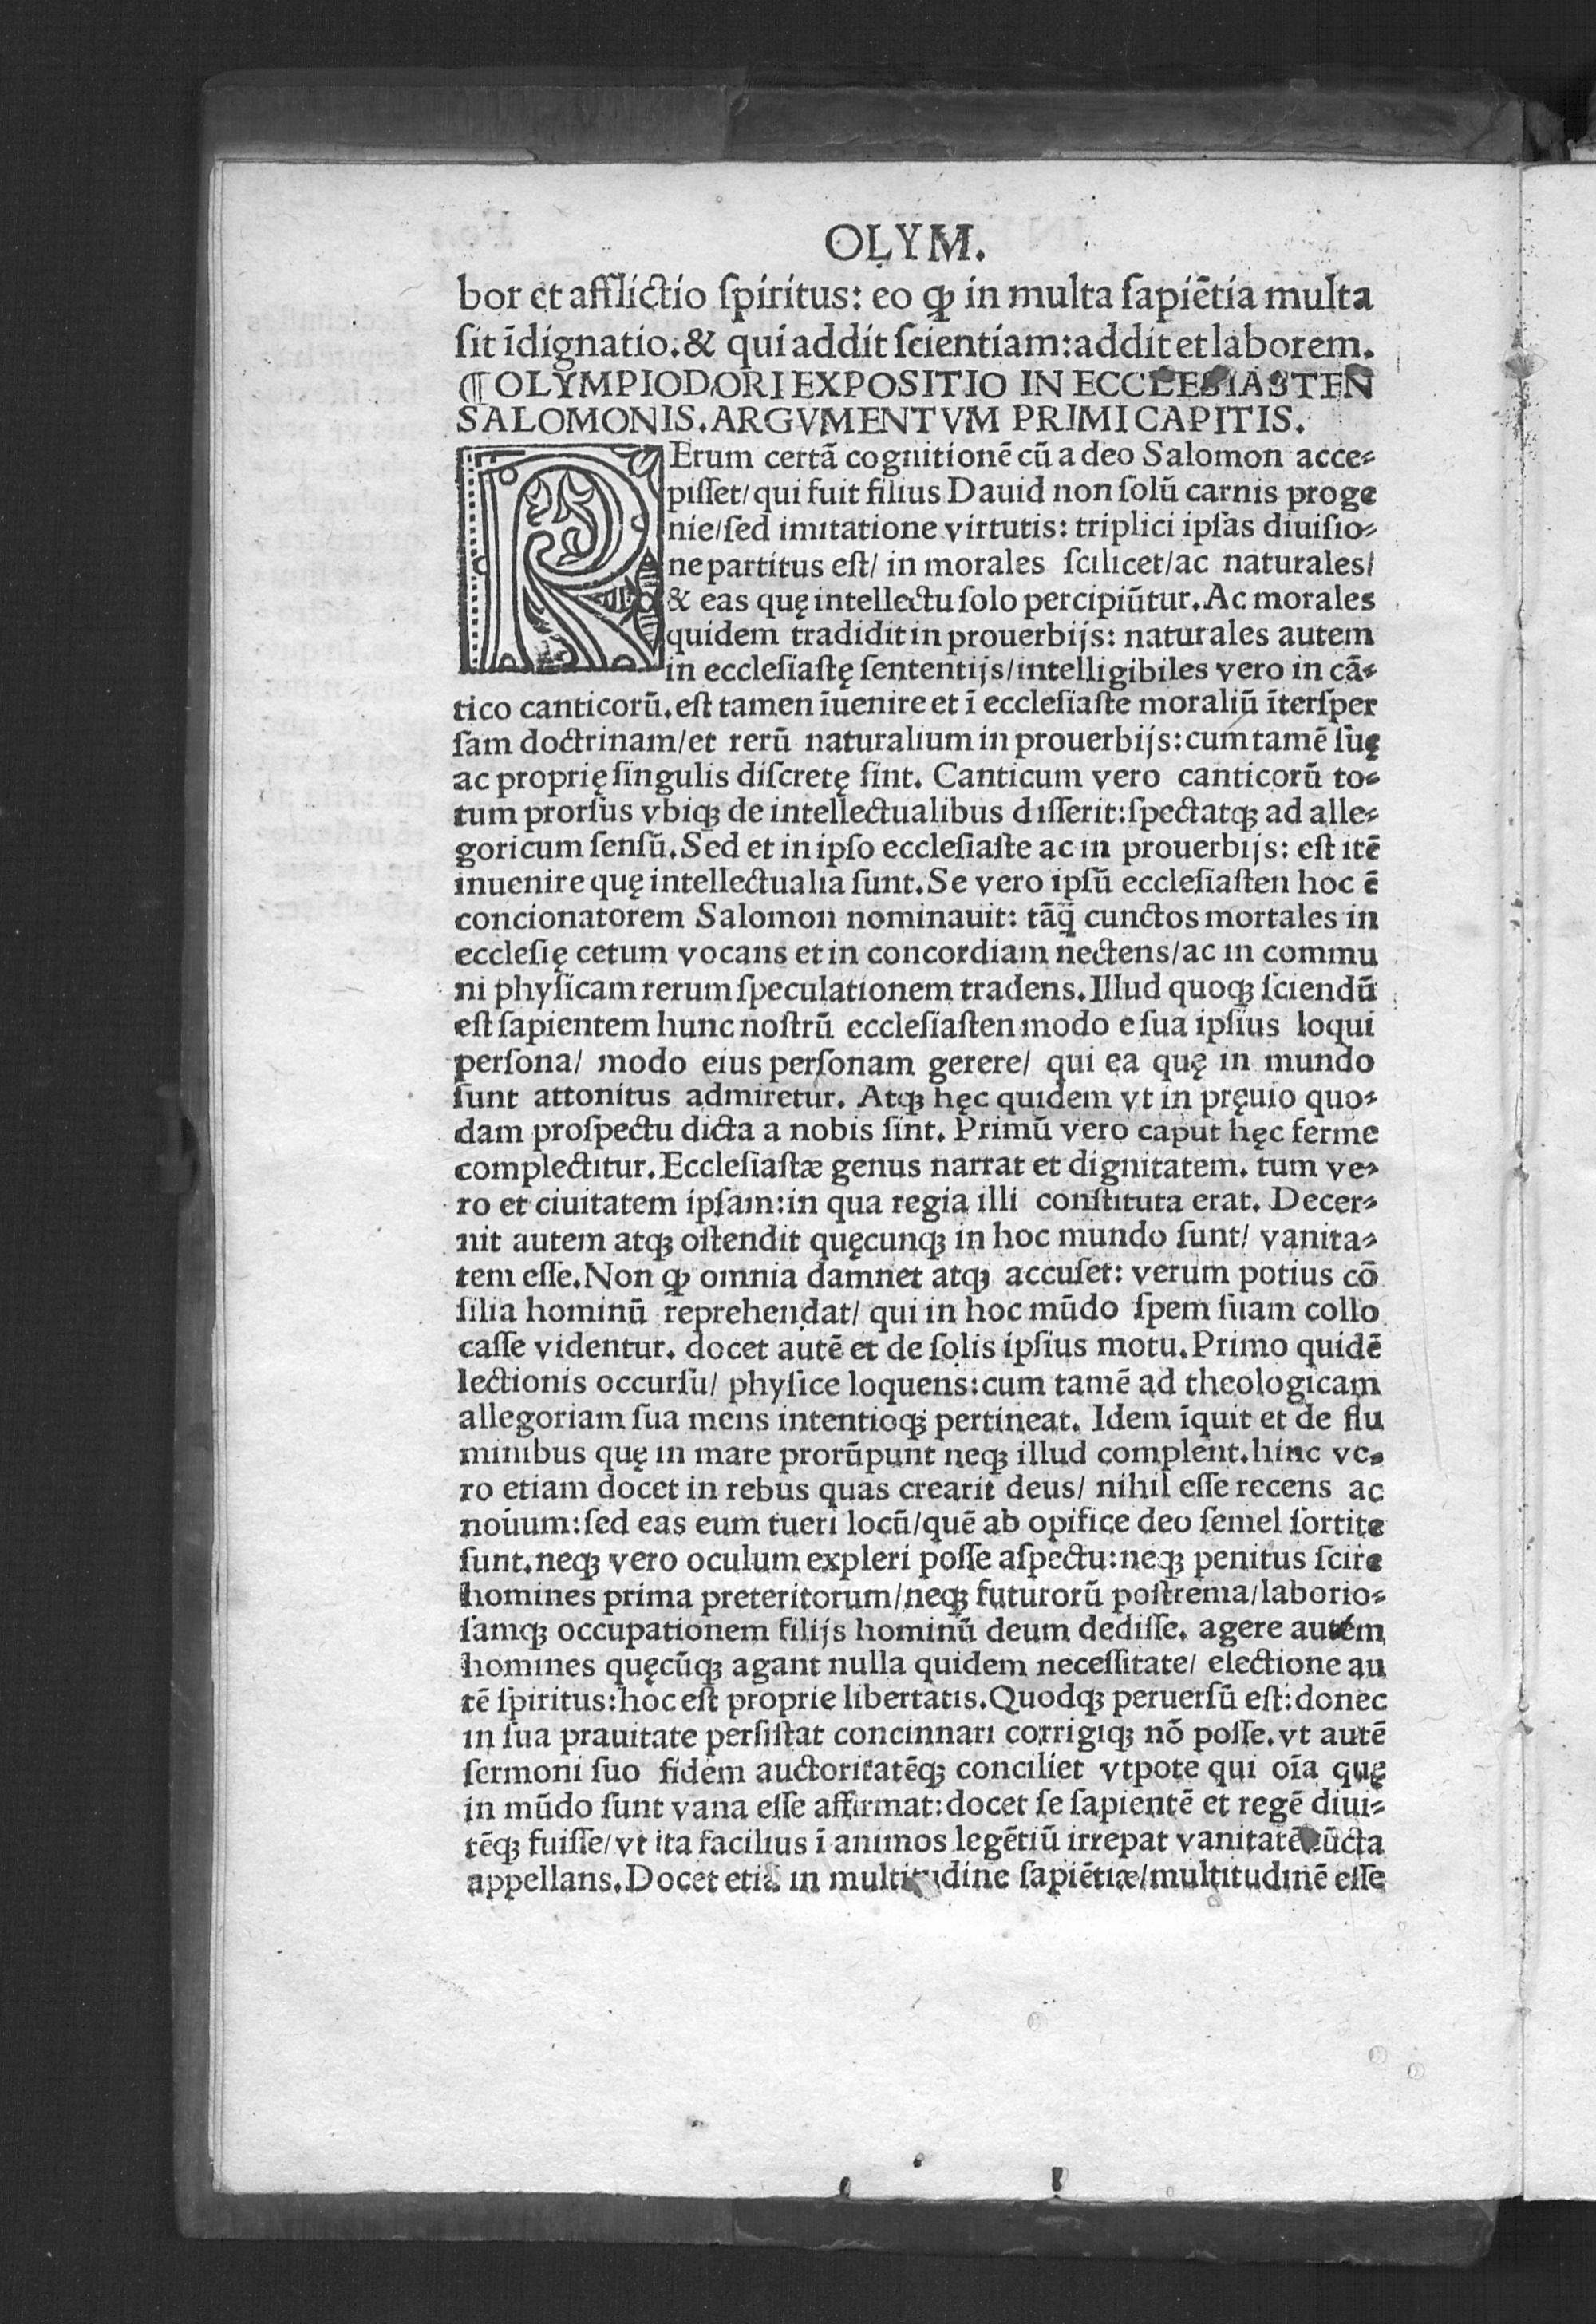 OLYM.
bor et afflictio ſpiritus: eo ꝙ in multa ſapiētia multa
ſit īdignatio. & qui addit ſcientiam: addit et laborem.
¶ OLYMPIODORI EXPOSITIO IN ECCLESIASTEN
SALOMONIS. ARGVMENTVM PRIMI CAPITIS.
RErum certā cognitionē cū a deo Salomon acce-
piſſet/ qui fuit filius Dauid non ſolū carnis proge
nie/ ſed imitatione virtutis: triplici ipſas diuiſio-
ne partitus eſt/ in morales ſcilicet/ ac naturales/
& eas quę intellectu ſolo percipiūtur. Ac morales
quidem tradidit in prouerbijs: naturales autem
in eccleſiaſtę ſententijs/ intelligibiles vero in cā-
tico canticorū. eſt tamen īuenire et ī eccleſiaſte moraliū īterſper
ſam doctrinam/ et rerū naturalium in prouerbijs: cum tamē ſuę
ac proprię ſingulis diſcretę ſint. Canticum vero canticorū to-
tum prorſus vbiqꝫ de intellectualibus diſſerit: ſpectatqꝫ ad alle-
goricum ſenſū. Sed et in ipſo eccleſiaſte ac in prouerbijs: eſt itē
inuenire quę intellectualia ſunt. Se vero ipſū eccleſiaſten hoc ē
concionatorem Salomon nominauit: tāq̄ cunctos mortales in
eccleſię cetum vocans et in concordiam nectens/ ac in commu
ni phyſicam rerum ſpeculationem tradens. Illud quoqꝫ ſciendū
eſt ſapientem hunc noſtrū eccleſiaſten modo e ſua ipſius loqui
perſona/ modo eius perſonam gerere/ qui ea quę in mundo
ſunt attonitus admiretur. Atqꝫ hęc quidem vt in pręuio quo-
dam proſpectu dicta a nobis ſint. Primū vero caput hęc ferme
complectitur. Eccleſiaſtæ genus narrat et dignitatem. tum ve-
ro et ciuitatem ipſam: in qua regia illi conſtituta erat. Decer-
nit autem atqꝫ oſtendit quęcunqꝫ in hoc mundo ſunt/ vanita-
tem eſſe. Non ꝙ omnia damnet atqꝫ accuſet: verum potius cō
ſilia hominū reprehendat/ qui in hoc mūdo ſpem ſuam collo
caſſe videntur. docet autē et de ſolis ipſius motu. Primo quidē
lectionis occurſu/ phyſice loquens: cum tamē ad theologicam
allegoriam ſua mens intentioqꝫ pertineat. Idem īquit et de flu
minibus quę in mare prorūpunt neqꝫ illud complent. hinc ve-
ro etiam docet in rebus quas crearit deus/ nihil eſſe recens ac
nouum: ſed eas eum tueri locū/ quē ab opifice deo ſemel ſortite
ſunt. neqꝫ vero oculum expleri poſſe aſpectu: neqꝫ penitus ſcire
homines prima preteritorum/ neqꝫ futurorū poſtrema/ laborio-
ſamqꝫ occupationem filijs hominū deum dediſſe. agere autem
homines quęcūqꝫ agant nulla quidem neceſſitate/ electione au
tē ſpiritus: hoc eſt proprie libertatis. Quodqꝫ peruerſū eſt: donec
in ſua prauitate perſiſtat concinnari corrigiqꝫ nō poſſe. vt autē
ſermoni ſuo fidem auctoritatēqꝫ conciliet vtpote qui oīa quę
in mūdo ſunt vana eſſe affirmat: docet ſe ſapientē et regē diui-
tēqꝫ fuiſſe/ vt ita facilius ī animos legētiū irrepat vanitatē cūcta
appellans. Docet etiā in multitudine ſapiētiæ/ multitudinē eſſe